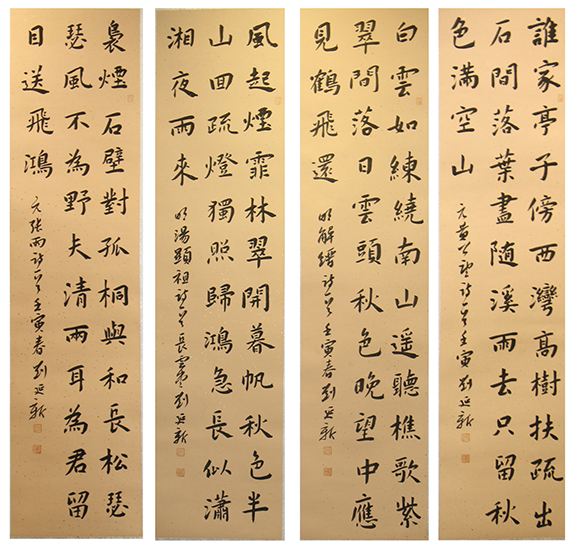 誰家亭子傍西灣高樹扶疏出
石間落葉盡隨溪雨去只留秋
色滿空山
元黃公望詩一首壬寅劉延新
白雲如練繞南山遥聽樵歌紫
翠間落日雲頭秋色晚望中應
見鶴飛還
明解縉詩一首壬寅春劉延新
風起煙霏林翠開暮帆秋色半
山回疏燈獨照歸鴻急長似瀟
湘夜雨來
明湯顯祖詩一首長雲劉延新
裊煙石壁對孤桐與和長松瑟
瑟風不為野夫清兩耳為君留
目送飛鴻
元張雨詩一首壬寅春劉延新